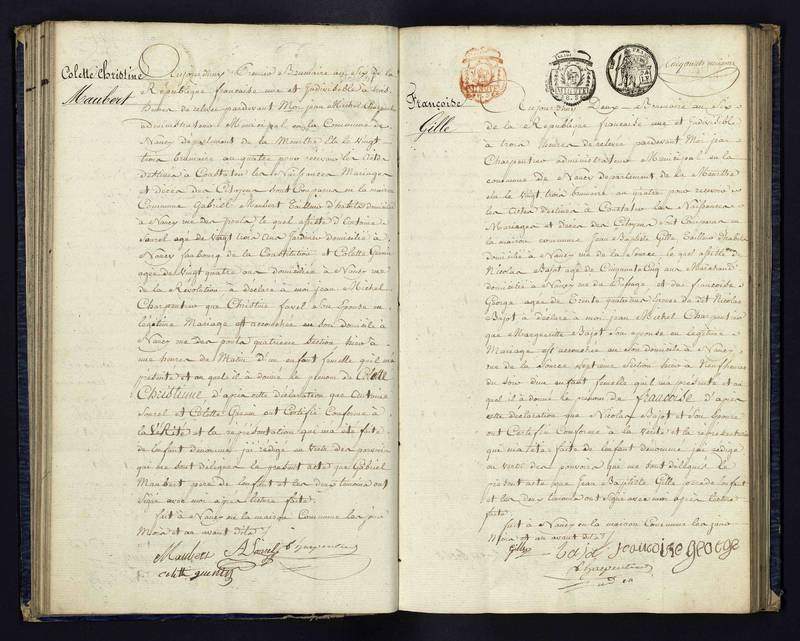 Colette Christine
Maubert
Aujourd'huy Premier Brumaire an Six de la
République francaise une et Indivisible a
heures de relevée pardevant Moi jean Michel Charpentier
administrateur Municipal en la Commune de
Nancy departement de la Meurthe Elu le Vingt-
trois brumaire an quatre pour recevoir les Actes
destinés à Constater les Naissances Mariages
et Décès des Citoyens Sont Comparus en la maison
Commune Gabriel Maubert tailleur d'habits domicilié
à Nancy rue des ponts le quel assisté d'Antoine
agé de Vingt trois ans Jardinier domicilié à
Nancy faubourg de la Constitution et Colette
agée de Vingt quatre ans domiciliée à Nancy rue
de la Révolution à déclaré à moi jean Michel
Charpentier que Christine favel Son Epouse en
légitime Mariage est accouchée en Son domicile à
Nancy rue des ponts quatrieme Section hier à
une heure du Matin d'un enfant femelle qu'il m'a
présenté et au quel il à donné le prenom de Colette
Christienne d'après cette déclaration que Antoine
et Colette ont Certifié Conforme à
la Vérité et la représentation qui m'a été faite
de l'enfant dénommé j'ai rédigé en vertu des pouvoirs
qui me sont délégués le présent acte que Gabriel
Maubert pere de l'enfant et les deux temoins ont
Signé avec moi après lecture faite.
fait à Nancy en la maison Commune les jour
Mois et an avant dits
Maubert Charpentier
colette
Françoise
Gille
Aujourd'huy Deux Brumaire an Six
de la République francaise une et Indivisible
à trois heures de relevée pardevant Moi jean
Charpentier administrateur Municipal en la
commune de Nancy departement de la Meurthe
élu le Vingt trois brumaire an quatre pour recevoir
les Actes destinés à Constater les Naissances
Mariages et Décès des Citoyens Sont Comparus en
la maison commune Jean Baptiste Gille tailleur d'habits
domicilié à Nancy rue de la Source le quel assisté de
Nicolas Bajot agé de Cinquante Cinq ans Marchand
domicilié à Nancy rue du Refuge et de francoise
George agée de Trente quatre ans Epouse du dit Nicolas
Bajot à déclaré à moi jean Michel Charpentier
que Marguerite Bajot Son epouse en légitime
Mariage est accouchée en Son domicile à Nancy
rue de la Source Septieme Section hier à neuf heures
du Soir d'un enfant femelle qu'il m'a présenté et au
quel il à donné le prenom de francoise d'après
cette déclaration que Nicolas Bajot et Son Epouse
ont Certifié Conforme à la Vérité et la représentation
qui m'a été faite de l'enfant dénommé j'ai rédigé
en vertu des pouvoirs qui me sont délégués le
présent acte que Jean Baptiste Gille pere de l'enfant
et les deux temoins ont Signé avec moi après lecture
faite.
fait à Nancy en la maison Commune les jour
Mois et an avant dits
Gille Bajot francoise george
Charpentier